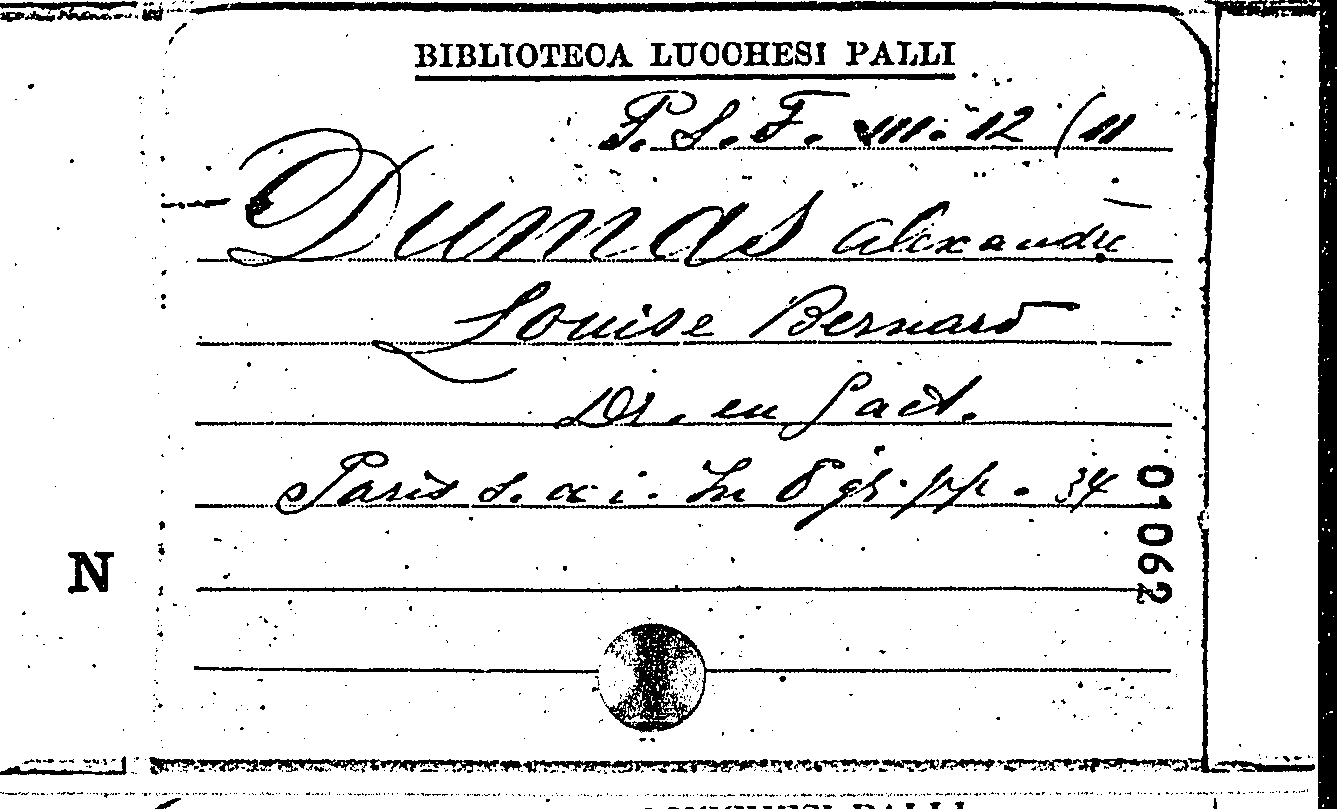 BIBLIOTECA LUCCHESI PALLI
P. S. F. III. 12 (11
Dumas Alexandre
Louise Bernard
Dr. en 5 act.
Paris s. a. i. In 8 gr. pp. 34
01062
N